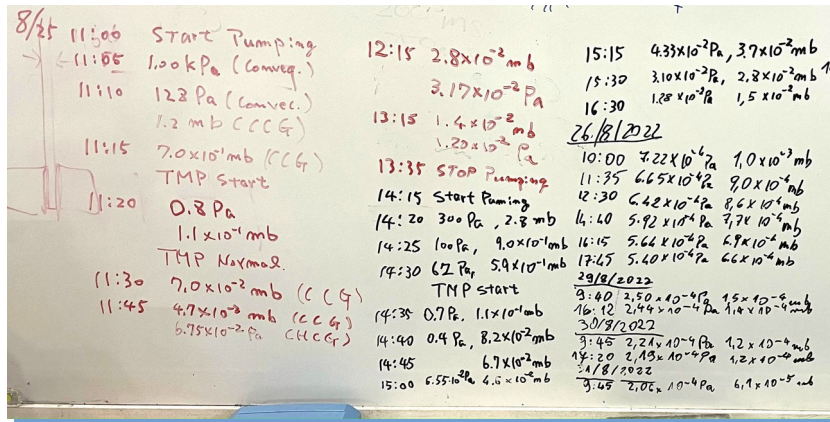 8/25
11:00 Start Pumping
11:05 1.00 kPa (Conveq.)
11:10 123 Pa (Convec.)
1.2 mb (CCG)
11:15 7.0×10⁻¹ mb (CCG)
TMP Start
11:20 0.8 Pa
1.1×10⁻¹ mb
TMP Normal.
11:30 7.0×10⁻² mb (CCG)
11:45 4.7×10⁻³ mb (CCG)
6.75×10⁻² Pa (HCG)
12:15 2.8×10⁻² mb
3.17×10⁻² Pa
13:15 1.4×10⁻² mb
1.20×10⁻² Pa
13:35 STOP Pumping
14:15 Start Puming
14:20 300 Pa, 2.8 mb
14:25 100 Pa, 9.0×10⁻¹ mb
14:30 62 Pa, 5.9×10⁻¹ mb
TMP start
14:35 0.7 Pa, 1.1×10⁻¹ mb
14:40 0.4 Pa, 8.2×10⁻² mb
14:45 6.7×10⁻² mb
15:00 6.55·10⁻² Pa 4.6×10⁻² mb
15:15 4.33×10⁻² Pa, 3.7×10⁻² mb
15:30 3.10×10⁻² Pa, 2.8×10⁻² mb
16:30 1.28×10⁻² Pa, 1,5×10⁻² mb
26/8/2022
10:00 7.22×10⁻⁴ Pa 1,0×10⁻³ mb
11:35 6.65×10⁻⁴ Pa 9,0×10⁻⁴ mb
12:30 6.42×10⁻⁴ Pa 8,6×10⁻⁴ mb
14:40 5.92×10⁻⁴ Pa 7,7×10⁻⁴ mb
16:15 5.64×10⁻⁴ Pa 6.9×10⁻⁴ mb
17:45 5.40×10⁻⁴ Pa 6.6×10⁻⁴ mb
29/8/2022
9:40 2,50×10⁻⁴ Pa 1,5×10⁻⁴ mb
16:12 2,44×10⁻⁴ Pa 1,4×10⁻⁴ mb
30/8/2022
9:45 2,21×10⁻⁴ Pa 1,2×10⁻⁴ mb
14:20 2,19×10⁻⁴ Pa 1,2×10⁻⁴ mb
31/8/2022
9:45 2,06×10⁻⁴ Pa 6,1×10⁻⁵ mb